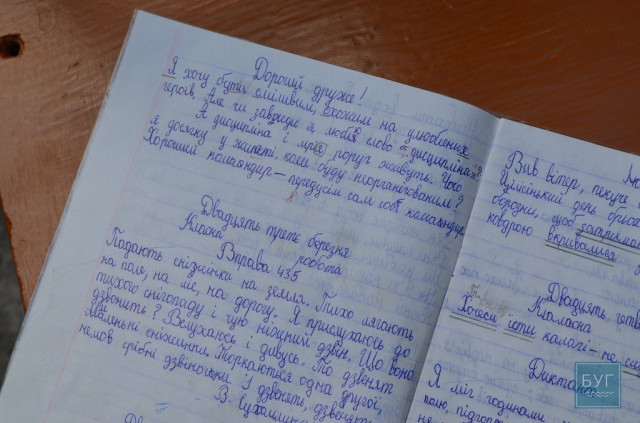 Дорогий друже!
Я хочу бути сміливим, схожим на улюблених
героїв. Але чи завжди я люблю слово "дисципліна"?
А дисципліна і мрія поруч живуть. Чого
я досягну у житті, коли буду неорганізованим?
Хороший командир – передусім сам собі командир.
Двадцять третє березня
Класна робота
Вправа 435
Падають сніжинки на землю. Тихо лягають
на поле, на ліс, на дорогу. Я прислухаюсь до
тихого снігопаду і чую ніжний дзвін. Що воно
дзвенить? Вслухаюсь і дивусь. То дзвенять
маленькі сніжинки. Торкаються одна другої,
немов срібні дзвіночки. І дзвенять, дзвенять
В. Сухомлинський
Вив вітер, пекуче
день
щоб
ковдрою вкривалися
Двадцять
Класна
Хочеш їсти калачі – не
Диктант
Я міг годинами
полю,
БУГ